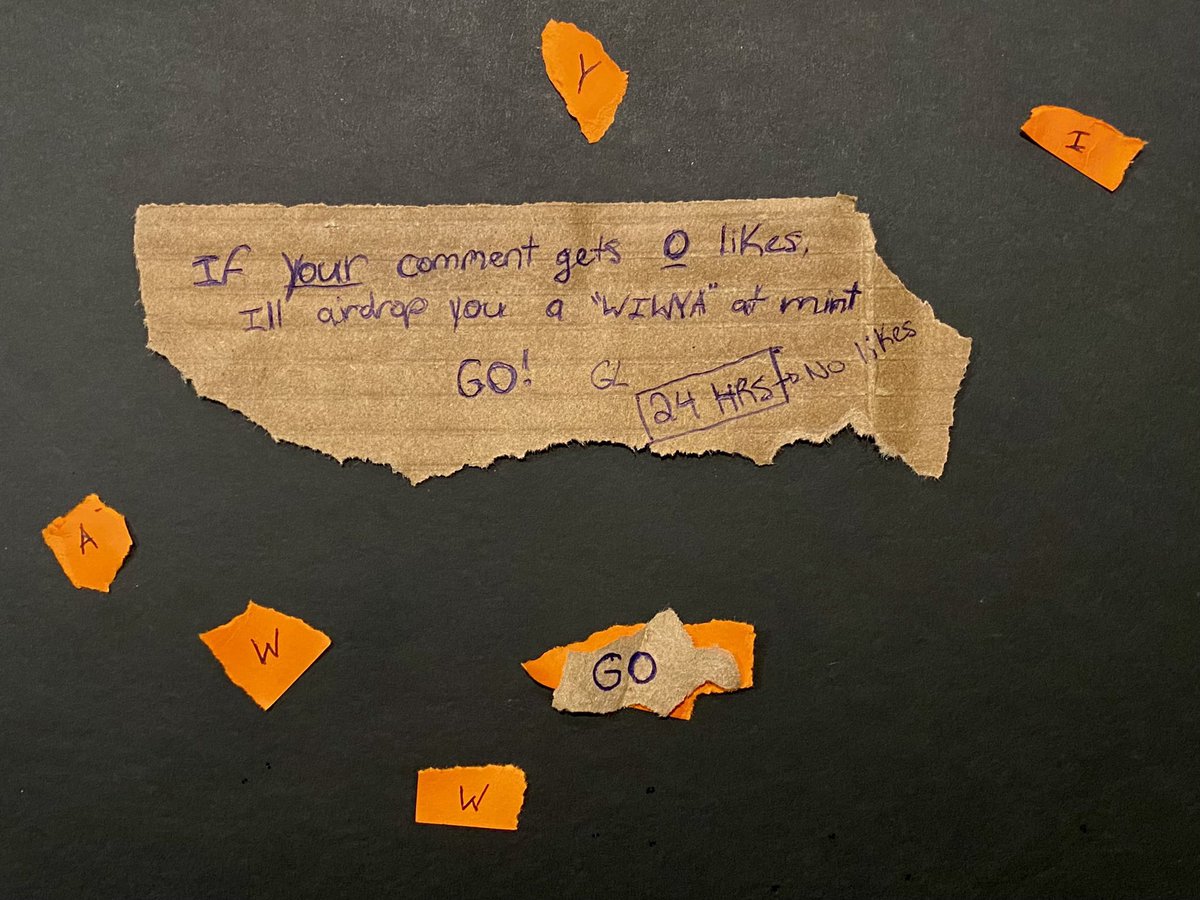 Y
I
If your comment gets 0 likes,
Ill airdrop you a "WIWYA" at mint
GO! GL 24 HRS → No likes
A
W
GO
W